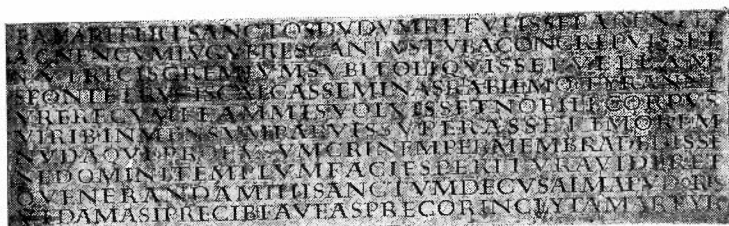 FAMAREFERTSANCTOSDVDVMRETVLISSEPARENTES
AGNENCVMLVGVBRESCANTVSTVBACONCREPVISSET
NVTRICISGREMIVMSVBITOLIQVISSEPVELLAM
SPONTETRVCISCALCASSEMINASRABIEMQTYRANNI
VRERECVMFLAMMISVOLVISSETNOBILECORPVS
VIRIBINMENSVMPARVISSVPERASSETIMOREM
NVDAQVEPROFVSVMCRINEMPERMEMBRADEDISSE
NEDOMINITEMPLVMFACIESPERITVRAVIDERET
OVENERANDAMIHISANCTVMDECVSALMAPVDORIS
VTDAMASIPRECIBFAVEASPRECORINCLYTAMARTYR